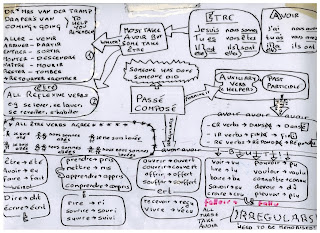 DR + MRS VAN DER TRAMP
DRAPERS VAN
COMING + GOING
TO HELP YOU REMEMBER
ALLER - VENIR
ARRIVER - PARTIR
ENTRER - SORTIR
MONTER - DESCENDRE
NAÎTRE - MOURIR
RESTER - TOMBER
+ RETOURNER RENTRER
être
ALL REFLEXIVE VERBS
eg se lever, se laver,
se réveiller, s'habiller
MOST TAKE
AVOIR BUT
SOME TAKE
ÊTRE
ÊTRE
Je suis nous sommes
Tu es vous êtes
Il est ils sont
AVOIR
J'ai nous avons
tu as vous avez
il a ils ont
SOMEONE HAS DONE
SOMEONE DID
PASSÉ
COMPOSÉ
AUXILIARY
VERBS
= HELPERS
PAST
PARTICIPLE
ALL ÊTRE VERBS AGREE
avoir
avoir
avoir
ER verbs → DANSER → DANSÉ
IR verbs → FINIR → FINI
RE verbs → RÉPONDRE → RÉPONDU
être = été
avoir = eu
faire = fait
prendre = pris
mettre = mis
apprendre = appris
comprendre = compris
ouvrir = ouvert
couvrir = couvert
offrir = offert
souffrir = souffert
voir = vu
lire = lu
boire = bu
savoir = su
croire = cru
pouvoir = pu
vouloir = voulu
connaître = connu
devoir = dû
pleuvoir = plu
falloir → fallu
Dire = dit
écrire = écrit
rire = ri
sourire = souri
suivre = suivi
recevoir = reçu
vivre = vécu
ALL
THESE
TAKE
AVOIR
IRREGULARS!
NEED TO BE MEMORISED!